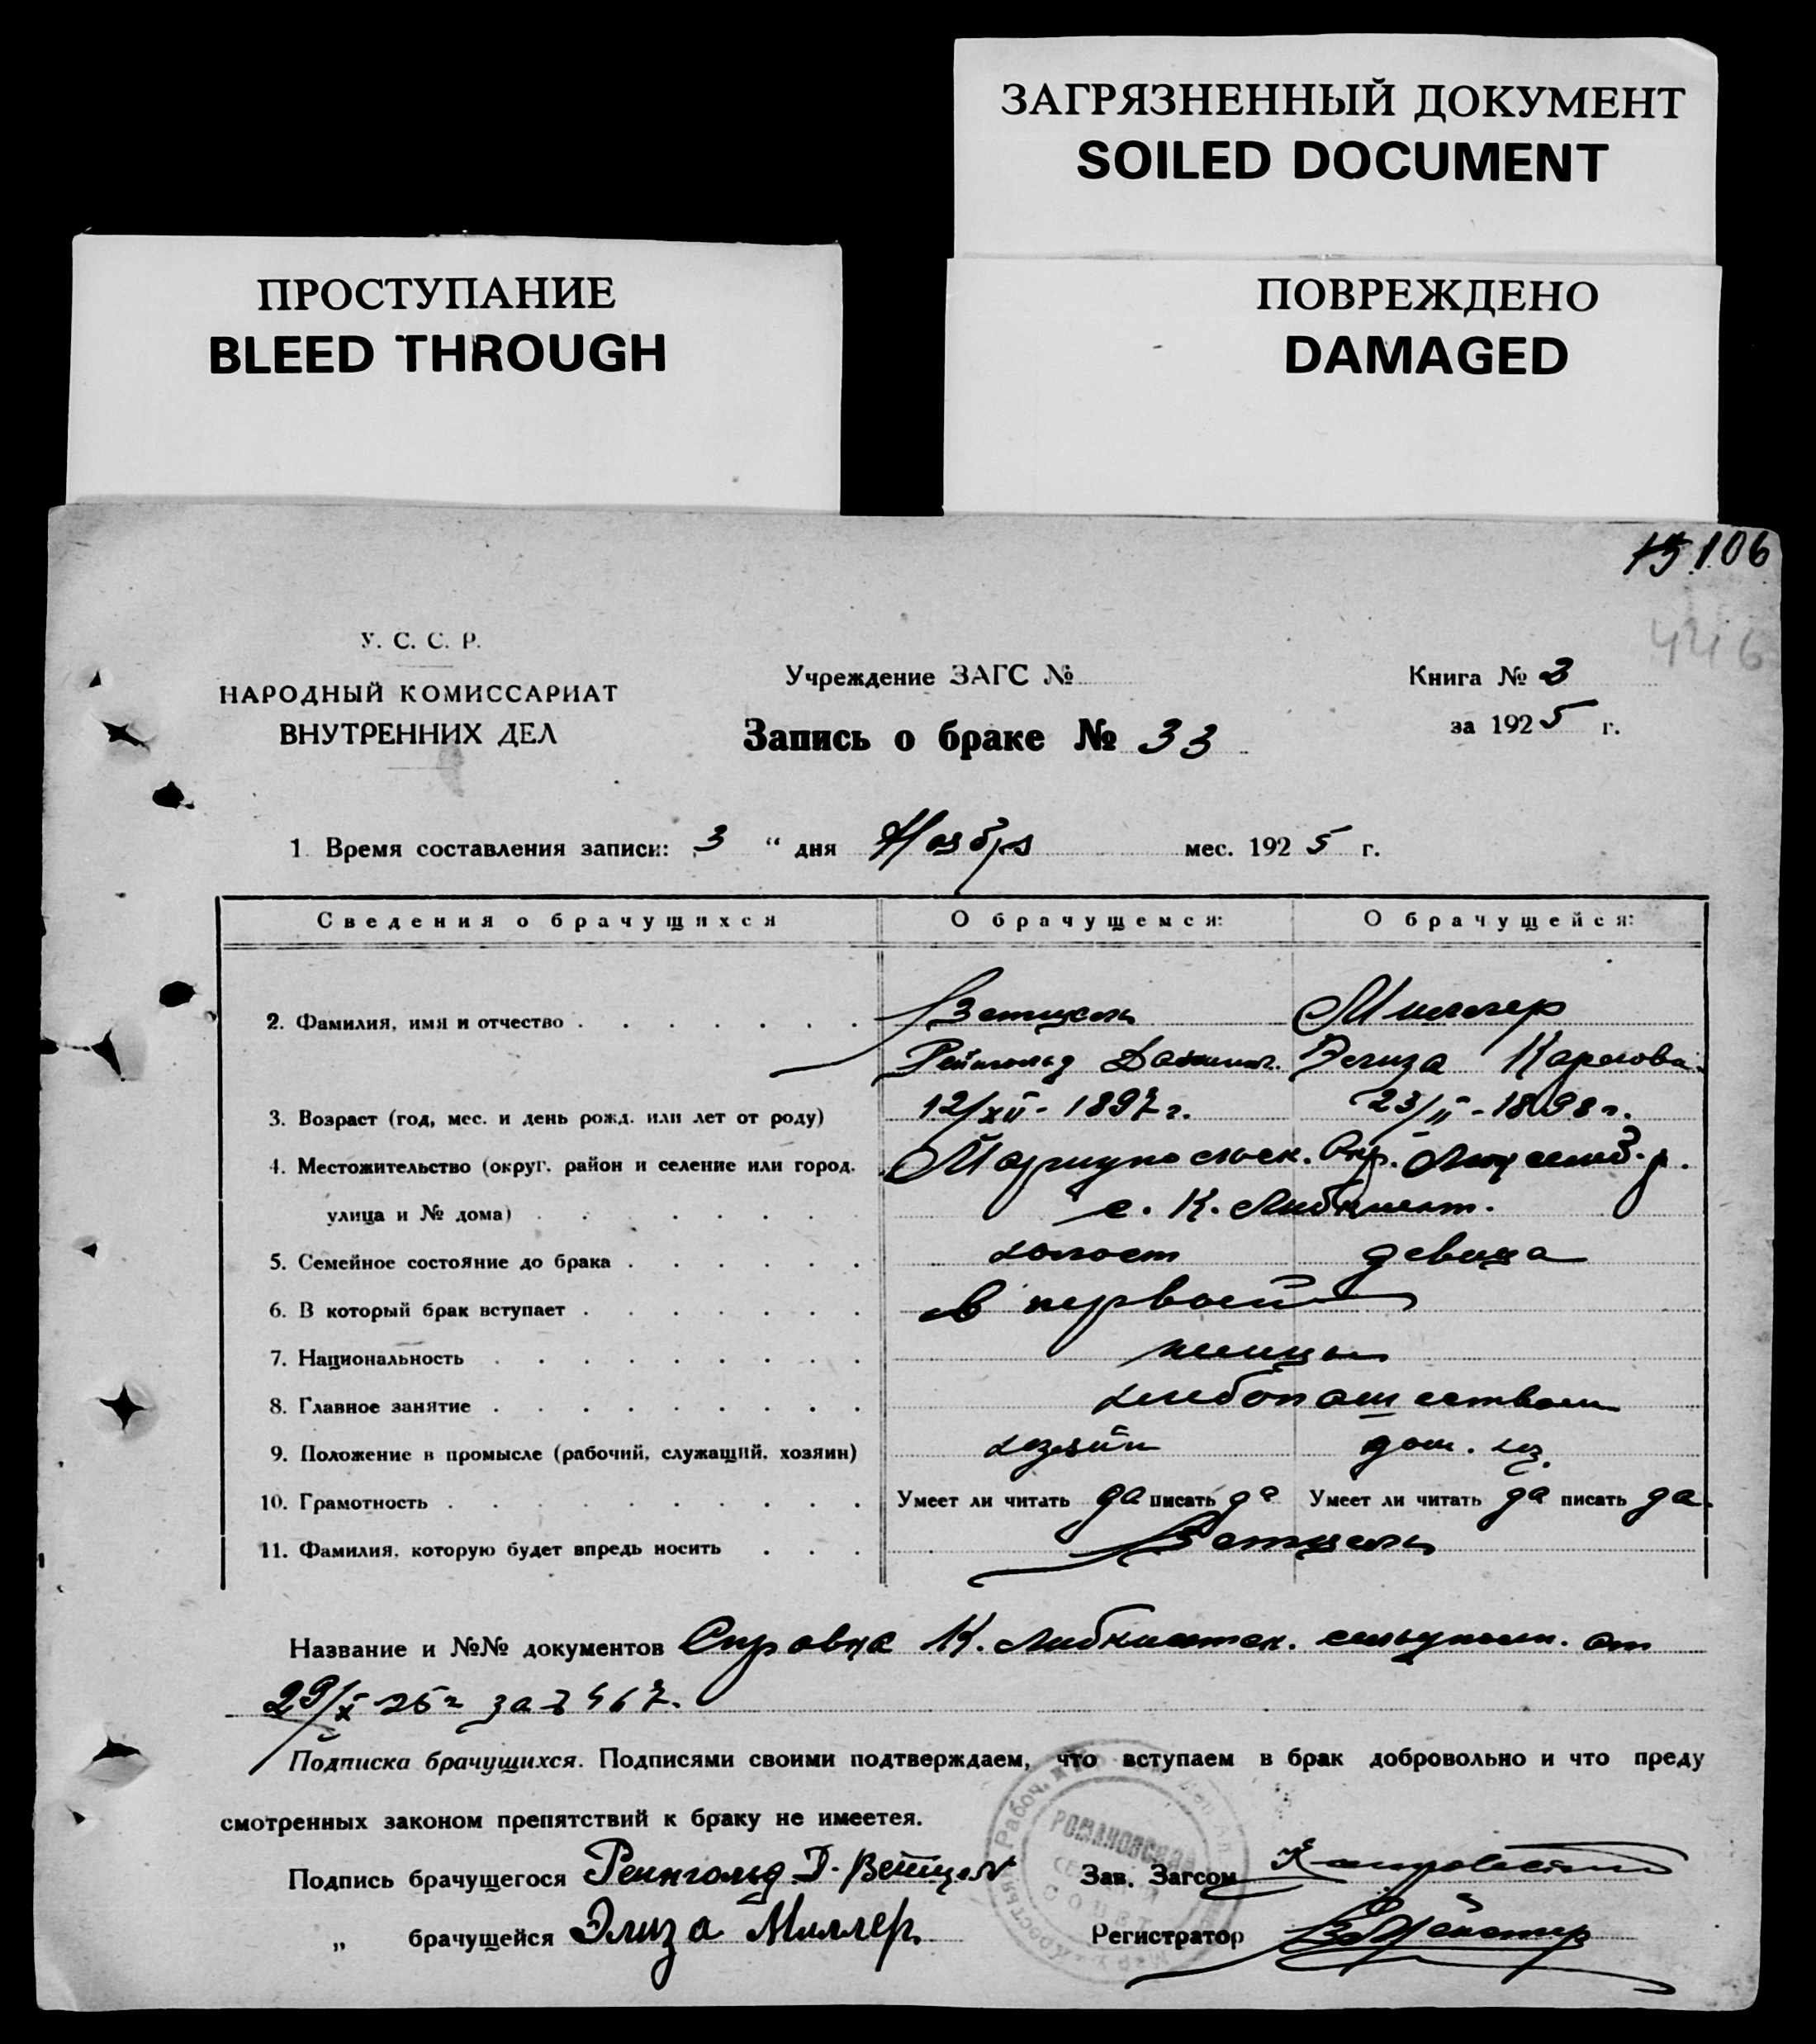 ЗАГРЯЗНЕННЫЙ ДОКУМЕНТ
SOILED DOCUMENT
ПРОСТУПАНИЕ
BLEED THROUGH
ПОВРЕЖДЕНО
DAMAGED
106
446
У. С. С. Р.
НАРОДНЫЙ КОМИССАРИАТ
ВНУТРЕННИХ ДЕЛ
Учреждение ЗАГС №
Запись о браке № 33
Книга № 3
за 1925 г.
1. Время составления записи: 3 " дня Ноября мес. 1925 г.
Сведения о брачущихся О брачущемся: О брачущейся:
2. Фамилия, имя и отчество Ветцель Миллер
Рейнгольд Элиза Карлова
3. Возраст (год, мес. и день рожд. или лет от роду) 12/XII - 1897 г. 23/II - 1898 г.
4. Местожительство (округ. район и селение или город. Мариупольск. Окр. Люксемб. р.
улица и № дома) с. К. Либкнехт.
5. Семейное состояние до брака холост девица
6. В который брак вступает в первый
7. Национальность немцы
8. Главное занятие хлебопашеством
9. Положение в промысле (рабочий, служащий, хозяин) хозяин дом. хоз.
10. Грамотность Умеет ли читать да писать да Умеет ли читать да писать да
11. Фамилия, которую будет впредь носить Ветцель
Название и №№ документов Справка К. Либкнехтск. сельуполн. от
29/X 25 г за № 467.
Подписка брачущихся. Подписями своими подтверждаем, что вступаем в брак добровольно и что преду
смотренных законом препятствий к браку не имеется.
Подпись брачущегося Реингольд Д. Ветцель Зав. Загсом
„ брачущейся Элиза Миллер. Регистратор
РОМАНОВСКИЙ
СОВЕТ